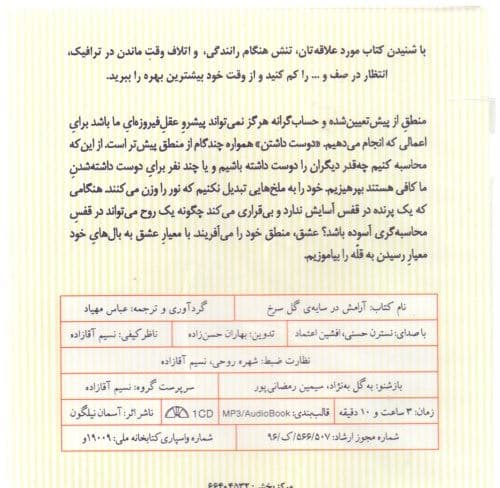 با شنیدن کتاب مورد علاقه‌تان، تنش هنگام رانندگی، و اتلاف وقتِ ماندن در ترافیک،
انتظار در صف و ... را کم کنید و از وقت خود بیشترین بهره را ببرید.
منطقِ از پیش‌تعیین‌شده و حساب‌گرانه هرگز نمی‌تواند پیشروِ عقلِ فیروزه‌ایِ ما باشد برای
اعمالی که انجام می‌دهیم. «دوست داشتن» همواره چندگام از منطق پیش‌تر است. از این‌که
محاسبه کنیم چه‌قدر دیگران را دوست داشته باشیم و یا چند نفر برای دوست داشته‌شدنِ
ما کافی هستند بپرهیزیم. خود را به ملخ‌هایی تبدیل نکنیم که نور را وزن می‌کنند. هنگامی
که یک پرنده در قفس آسایش ندارد و بی‌قراری می‌کند چگونه یک روح می‌تواند در قفسِ
محاسبه‌گری آسوده باشد؟ عشق، منطق خود را می‌آفریند. با معیارِ عشق به بال‌هایِ خود
معیارِ رسیدن به قلّه را بیاموزیم.
نام کتاب: آرامش در سایه‌ی گل سرخ گردآوری و ترجمه: عباس مهیاد
با صدای: نسترن حسنی، افشین اعتماد تدوین: بهاران حسن‌زاده ناظر کیفی: نسیم آقازاده
نظارت ضبط: شهره روحی، نسیم آقازاده
بازشنو: به‌گل به‌نژاد، سیمین رمضانی‌پور سرپرست گروه: نسیم آقازاده
زمان: ۳ ساعت و ۱۰ دقیقه قالب‌بندی: MP3/AudioBook 1CD ناشر اثر: آسمان نیلگون
شماره مجوز ارشاد: ۹۶/ک/۵۶۶/۵۰۷ شماره واسپاری کتابخانه ملی: ۱۹۰۰۹و
مرکز پخش: ۶۶۴۰۴۵۳۲